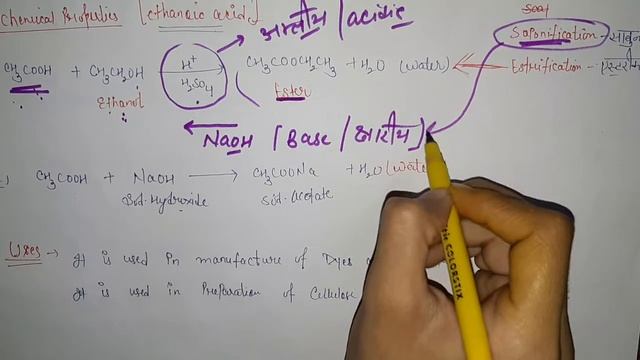 Chemical Properties [ethanoic acid]
अम्लीय / acidic
Soap
Saponification - साबुन
CH₃COOH + CH₃CH₂OH H⁺ H₂SO₄ CH₃COOCH₂CH₃ + H₂O (water)
Estrification -
Ethanol
Ester
NaOH [Base / क्षारीय]
CH₃COOH + NaOH → CH₃COONa + H₂O (wate
Sod. Hydroxide Sod. Acetate
Uses → It is used in manufacture of Dyes
It is used in Preparation of Cellulose